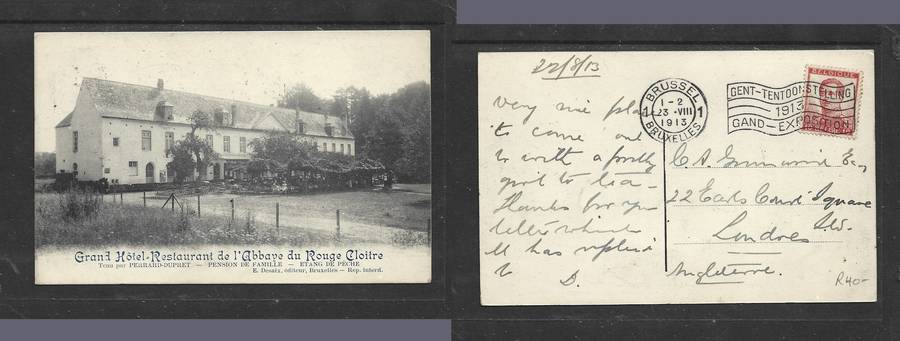 Grand Hôtel-Restaurant de l'Abbaye du Rouge Cloitre
Tenu par PERRARD-DUPRET. — PENSION DE FAMILLE — ETANG DE PÊCHE
E. Desaix, éditeur, Bruxelles — Rep. interd.
22/8/13
very nice place
to come out
to with a pretty
girl to tea -
Thanks for your
letter which
M has replied
to
D.
BRUSSEL
1 1-2 1
23 · VIII
1913
BRUXELLES
GENT-TENTOONSTELLING
1913
GAND-EXPOSITION
BELGIQUE
C. A. Esq,
22 Earls Court Square
Londres SW.
Angleterre.
R40-